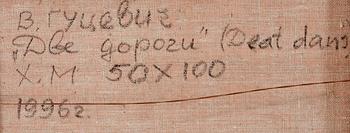 В. Гуцевич
„Две дороги" (Deat dans
Х.М 50X100
1996г.